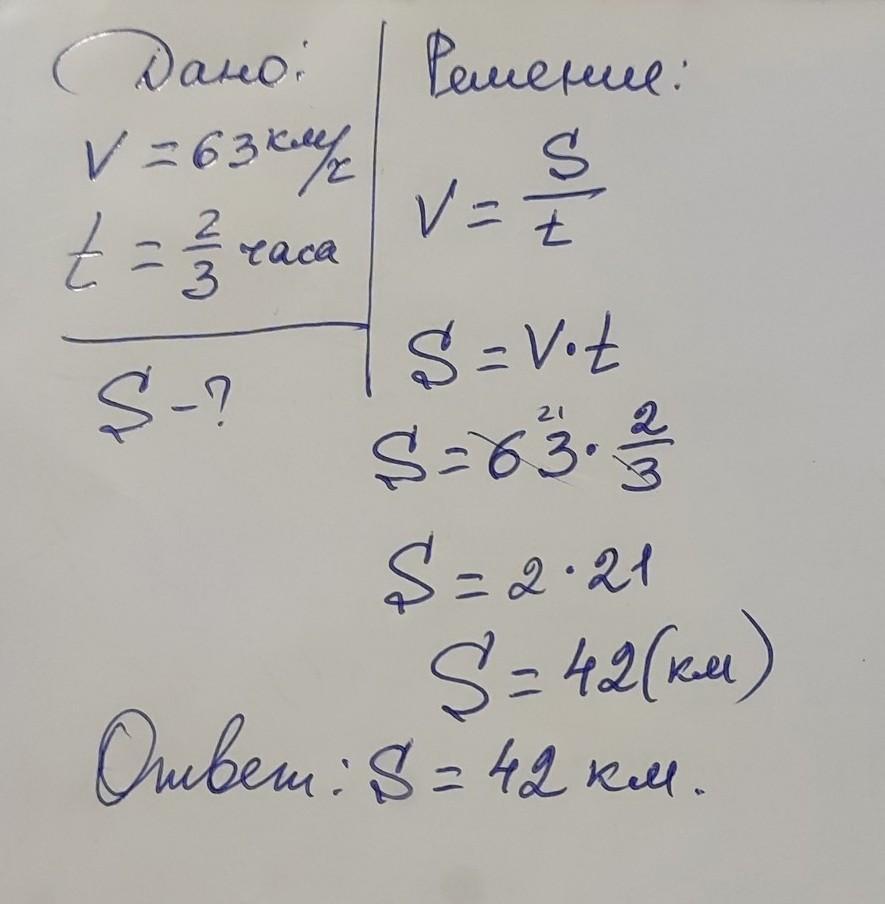 Дано:
V = 63 км/ч
t = 2/3 часа
S - ?
Решение:
V = S/t
S = V · t
S = 63 21 · 2/3
S = 2 · 21
S = 42 (км)
Ответ: S = 42 км.